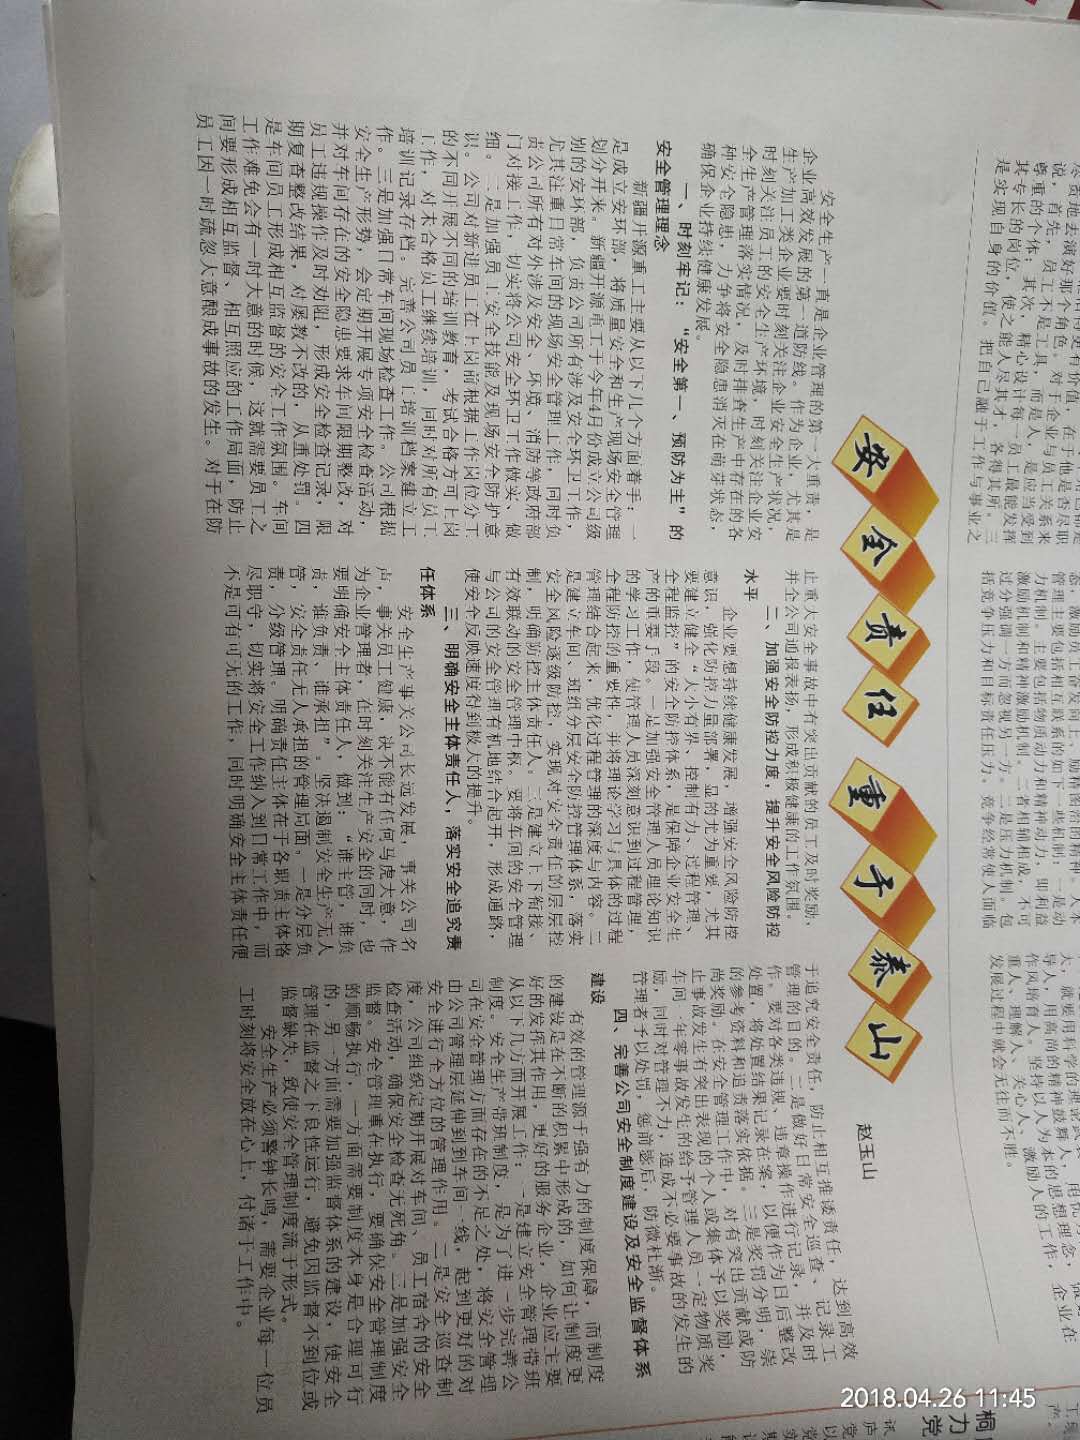 安全责任重于泰山
赵玉山
安全生产一直是企业管理的第一大重责，是
企业高效发展的第一道防线。作为企业，尤其是
生产加工类企业要时刻关注企业安全生产状况，
时刻关注员工的安全生产环境，时刻关注企业安
全生产管理落实情况，及时排查生产中存在的各
种安全隐患，力争将安全隐患消灭在萌芽状态，
确保企业持续健康发展。
一、时刻牢记：“安全第一、预防为主”的
安全管理理念
新疆开源重工主要从以下几个方面着手：一
是成立安环部，将质量安全和生产现场安全管理
划分开来。新疆开源重工于今年4月份成立公司级
别的安环部，负责公司所有涉及安全环卫工作，
尤其注重日常车间的现场安全管理工作，同时负
责公司所有对外涉及安全、环境、消防等政府部
门对接工作，切实将公司安全环卫工作做实、做
细。二是加强员工安全技能及现场安全防护意
识。公司对新进员工在上岗前根据工作岗位分工
的不同开展不同的培训教育，考试合格方可上岗
工作，对未合格员工继续培训，同时对所有员工
培训记录存档。完善公司员工培训档案建立工
作。三是加强日常车间现场检查工作。公司根据
安全生产形势，会定期开展专项安全检查活动，
并对车间存在的安全隐患要求车间限期整改，对
员工违规操作及时劝阻，形成安全检查记录，限
期复查整改结果，对屡教不改的，从重处罚。四
是车间员工形成相互监督的安全工作氛围。车间
工作难免会有一时大意的时候，这就需要员工之
间要形成相互监督、相互照应的工作局面，防止
员工因一时疏忽大意酿成事故的发生。对于在防
止重大安全事故中有突出贡献的员工及时奖励，
并全公司通报表扬，形成积极健康的工作氛围。
二、加强安全防控力度，提升安全风险防控
水平
企业要想持续健康发展，增强安全风险防控
意识，强化防控力量部署，显的尤为重要，尤其
要建立健全“大小有界、控制有力、过程管理、
全程监控”的安全防控体系，是保障企业安全生
产的重要手段。一是加强安全管理人员理论知识
的学习工作，使管理人员深刻意识到过程管理，
全程防控的重要性，并将理论学习与具体的过程
管理结合起来，优化过程管理的深度与内容。二
是建立车间、班组分层安全防控管理体系，落实
安全风险逐级防控，实现对安全责任的层层控
制，明确防控主体责任人。三是建立上下衔接、
有效联动的安全管理中枢。要将车间的安全管理
与公司的安全管理有机地结合起开，形成通路，
使安全反映速度得到极大的提升。
三、明确安全主体责任人，落实安全追究责
任体系
安全生产事关公司长远发展，事关公司名
声，事关员工健康，决不能有任何马虎大意，作
为企业管理者，在时刻关注生产安全的同时，也
要明确安全主体责任人，做到：“谁主管，谁负
责，谁负责、谁承担”。坚决遏制安全生产无人
管，安全责任无人承担的管理局面。一是分层负
责，分级管理。明确责任主体在于各职责主体恪
尽职守，切实将安全工作纳入到日常工作中，而
不是可有可无的工作，同时明确安全主体责任便
于追究安全责任，防止相互推诿责任，达到高效
管理的目的。二是做好日常安全巡查、记录工
作。要对各类违规、违章操作进行记录，并及时
处置，将处置结果记录在案，以便作为日后整改
的参考资料和追责落实依据。三是奖罚分明，崇
尚奖励。在安全管理工作中，对有突出贡献或防
止事故发生有突出表现的个人或集体予以奖励，
车间一年零事故发生的给予管理人员一定物质奖
励，同时对管理不力，造成不必要事故的发生的
管理者予以处罚，惩前毖后，防微杜渐。
四、完善公司安全制度建设及安全监督体系
建设
有效的管理源于强有力的制度保障，而制度
的建设是在不断的积累中形成的，如何让制度更
好的发挥其作用，更好的服务企业，企业应主要
从以下几方面开展工作：一是建立安全管理带班
制度。安全生产带班制度，是为了进一步完善公
司在安全管理方面存在的不足之处，将安全管理
由公司管理层延伸到车间一线，起到更好的对
安全进行全方位的管理作用。二是安全巡查制
度，公司组织定期开展对车间、员工宿舍的安全
检查活动，确保安全检查无死角。三是加强安全
监督。安全管理重在执行，要确保安全管理制度
的顺畅执行，一方面需要制度本身是合理可行
的，另一方面需要加强监督体系的建设，使安全
管理在监督之下良性运行，避免因监督不到位或
监督缺失，致使安全管理制度流于形式。
安全生产必须警钟长鸣，需要企业每一位员
工时刻将安全放在心上，付诸于工作中。
说，首先，员工不是工具，而是人，是应当受到
尊重的个体；其次，精心设计每一员工最能发挥
其专长的岗位，使之能人尽其才，各得其所。三
是实现自身的价值。把自己融于工作与事业之
管理主要包括相互联系的如下一些机制：一是动
力机制。主要包括物质动力和精神动力，即利益
激励机制和精神激励机制。二者相辅相成，不可
过分强调一方而忽视另一方。二是压力机制。包
括竞争压力和目标责任压力。竞争经常使人面临
导人，用高尚的精神鼓舞人，用优
作风培育人。坚持以人为本的思想理念，
重人、理解人、关心人、激励人的工作，企业在
发展过程中就会无往而不胜。
2018.04.26 11:45